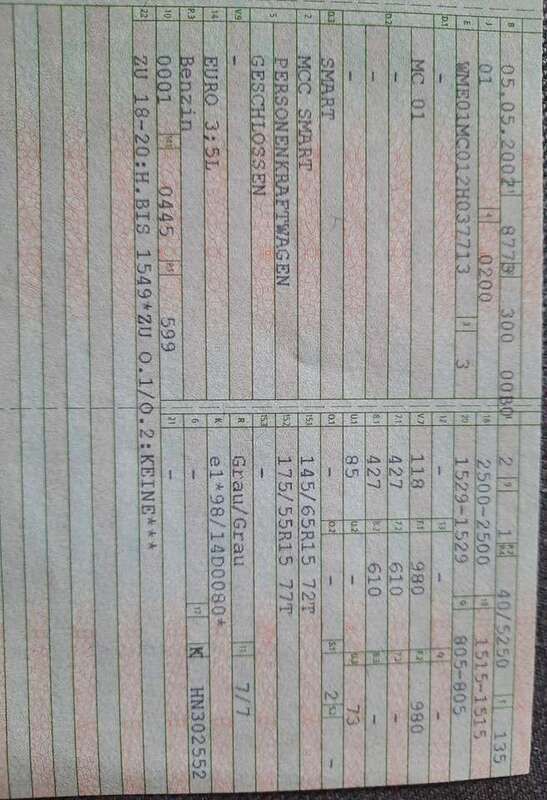 B 05.05.2002 2.1 8773 300 00B0 L 2 9 1 P.2 40/5250 T 135
J 01 4 0200 18 2500-2500 19 1515-1515
E WME01MC012H037713 3 3 20 1529-1529 G 805-805
D.1 - 12 - 13 - Q -
MC 01 V.7 118 F.1 980 F.2 980
D.2 - 7.1 427 7.2 610 7.3 -
- 8.1 427 8.2 610 8.3 -
- U.1 85 U.2 - U.3 73
D.3 SMART O.1 - O.2 - S.1 2 S.2 -
2 MCC SMART 15.1 145/65R15 72T
5 PERSONENKRAFTWAGEN 15.2 175/55R15 77T
GESCHLOSSEN 15.3 -
V.9 - R Grau/Grau 11 7/7
14 EURO 3;5L K e1*98/14D0080*
P.3 Benzin 6 - 17 K HN302552
10 0001 14.1 0445 P.1 599 21 -
22 ZU 18-20:H.BIS 1549*ZU O.1/O.2:KEINE***